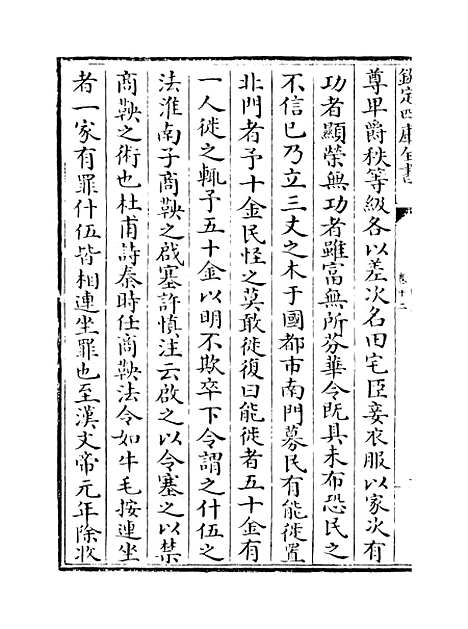 欽定四庫全書
卷十二
尊卑爵秩等級各以差次名田宅臣妾衣服以家次有
功者顯榮無功者雖富無所芬華令既具未布恐民之
不信已乃立三丈之木于國都市南門募民有能徙置
北門者予十金民怪之莫敢徙復曰能徙者五十金有
一人徙之輒予五十金以明不欺卒下令謂之什伍之
法淮南子商鞅之啟塞許慎注云啟之以令塞之以禁
商鞅之術也杜甫詩秦時任商鞅法令如牛毛按連坐
者一家有罪什伍皆相連坐罪也至漢文帝元年除收